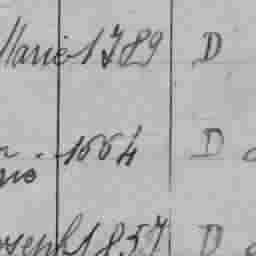 Marie 1789 D
1664 D
Joseph 1857 D